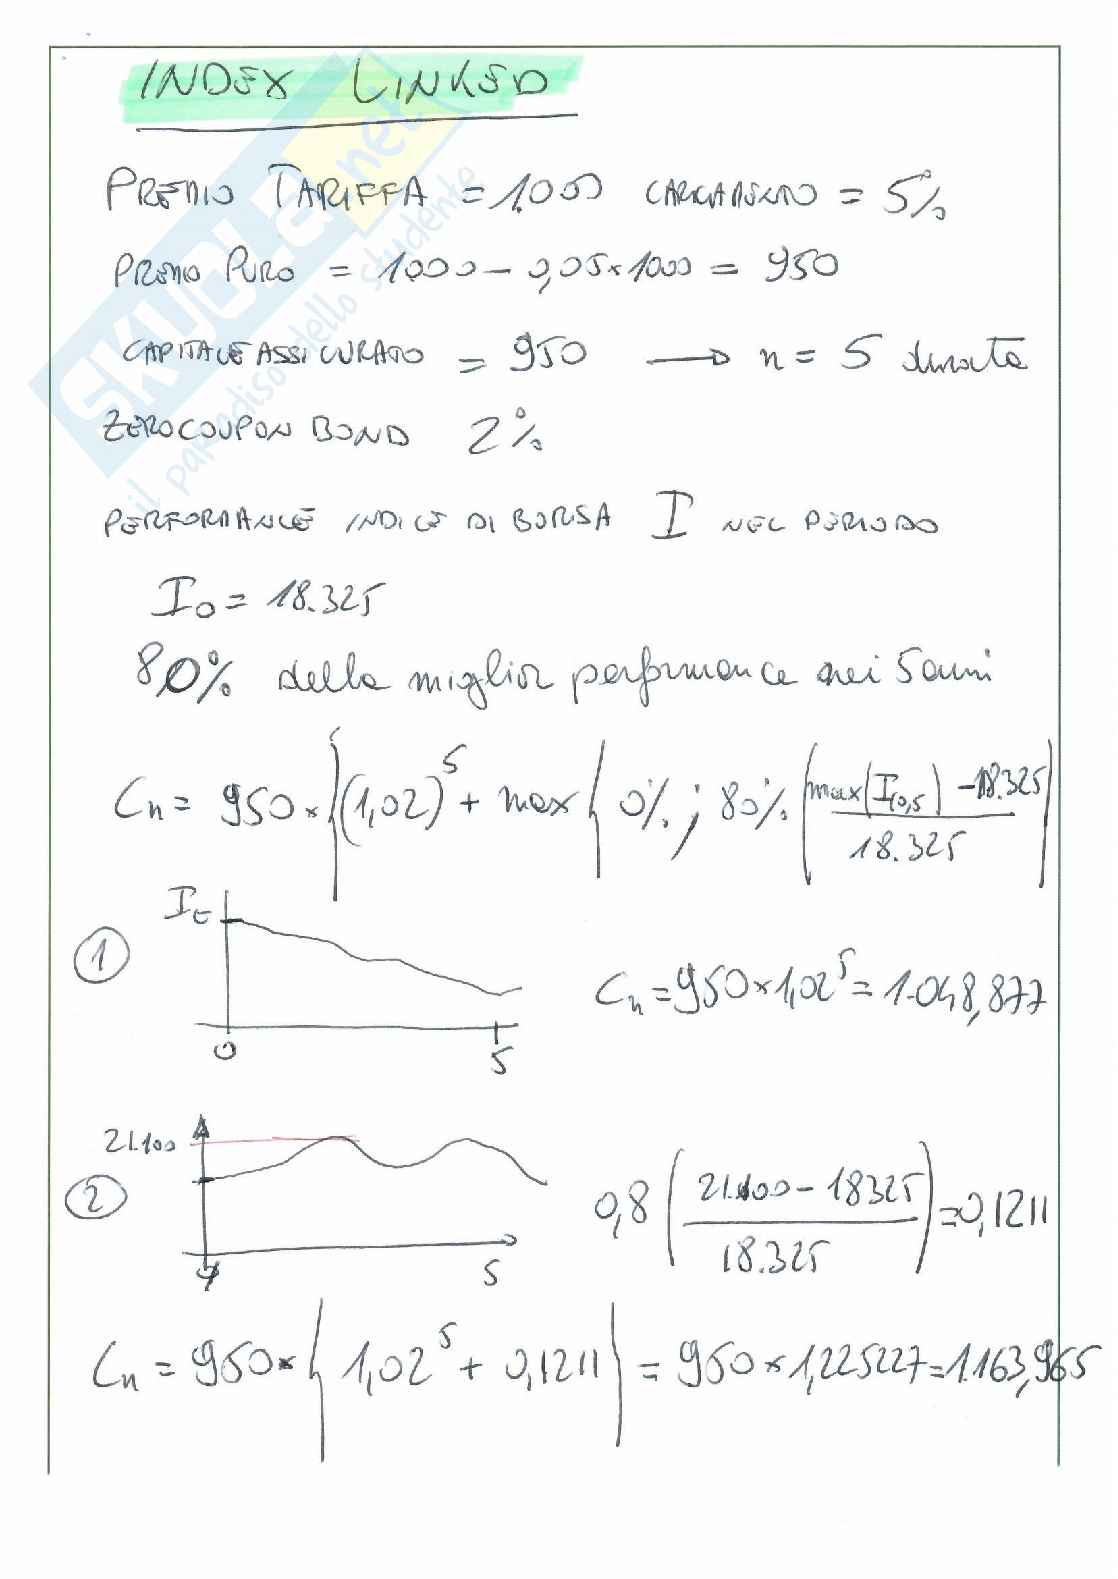 INDEX LINKED
PREMIO TARIFFA = 1.000 CARICAMENTO = 5%
PREMIO PURO = 1000 - 0,05 x 1000 = 950
CAPITALE ASSICURATO = 950 → n = 5 durata
ZERO COUPON BOND 2%
PERFORMANCE INDICE DI BORSA I NEL PERIODO
I0 = 18.325
80% della miglior performance nei 5 anni
Cn = 950 x {(1,02)^5 + max { 0% ; 80% ( max(I(0,5)) - 18.325 / 18.325 )
It
1
0
5
Cn = 950 x 1,02^5 = 1.048,877
21.100
2
5
0,8 ( 21.100 - 18325 / 18.325 ) = 0,1211
Cn = 950 x { 1,02^5 + 0,1211 } = 950 x 1,225227 = 1.163,965
SKUOLA.net
il paradiso dello studente